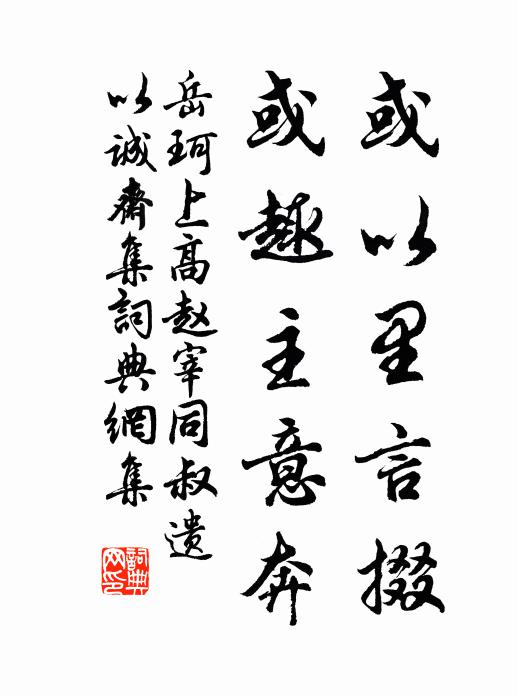 或以里言掇
或趣主意奔
岳珂上高赵宰同叔遗
以诚齋集詞典網集
詞典網印